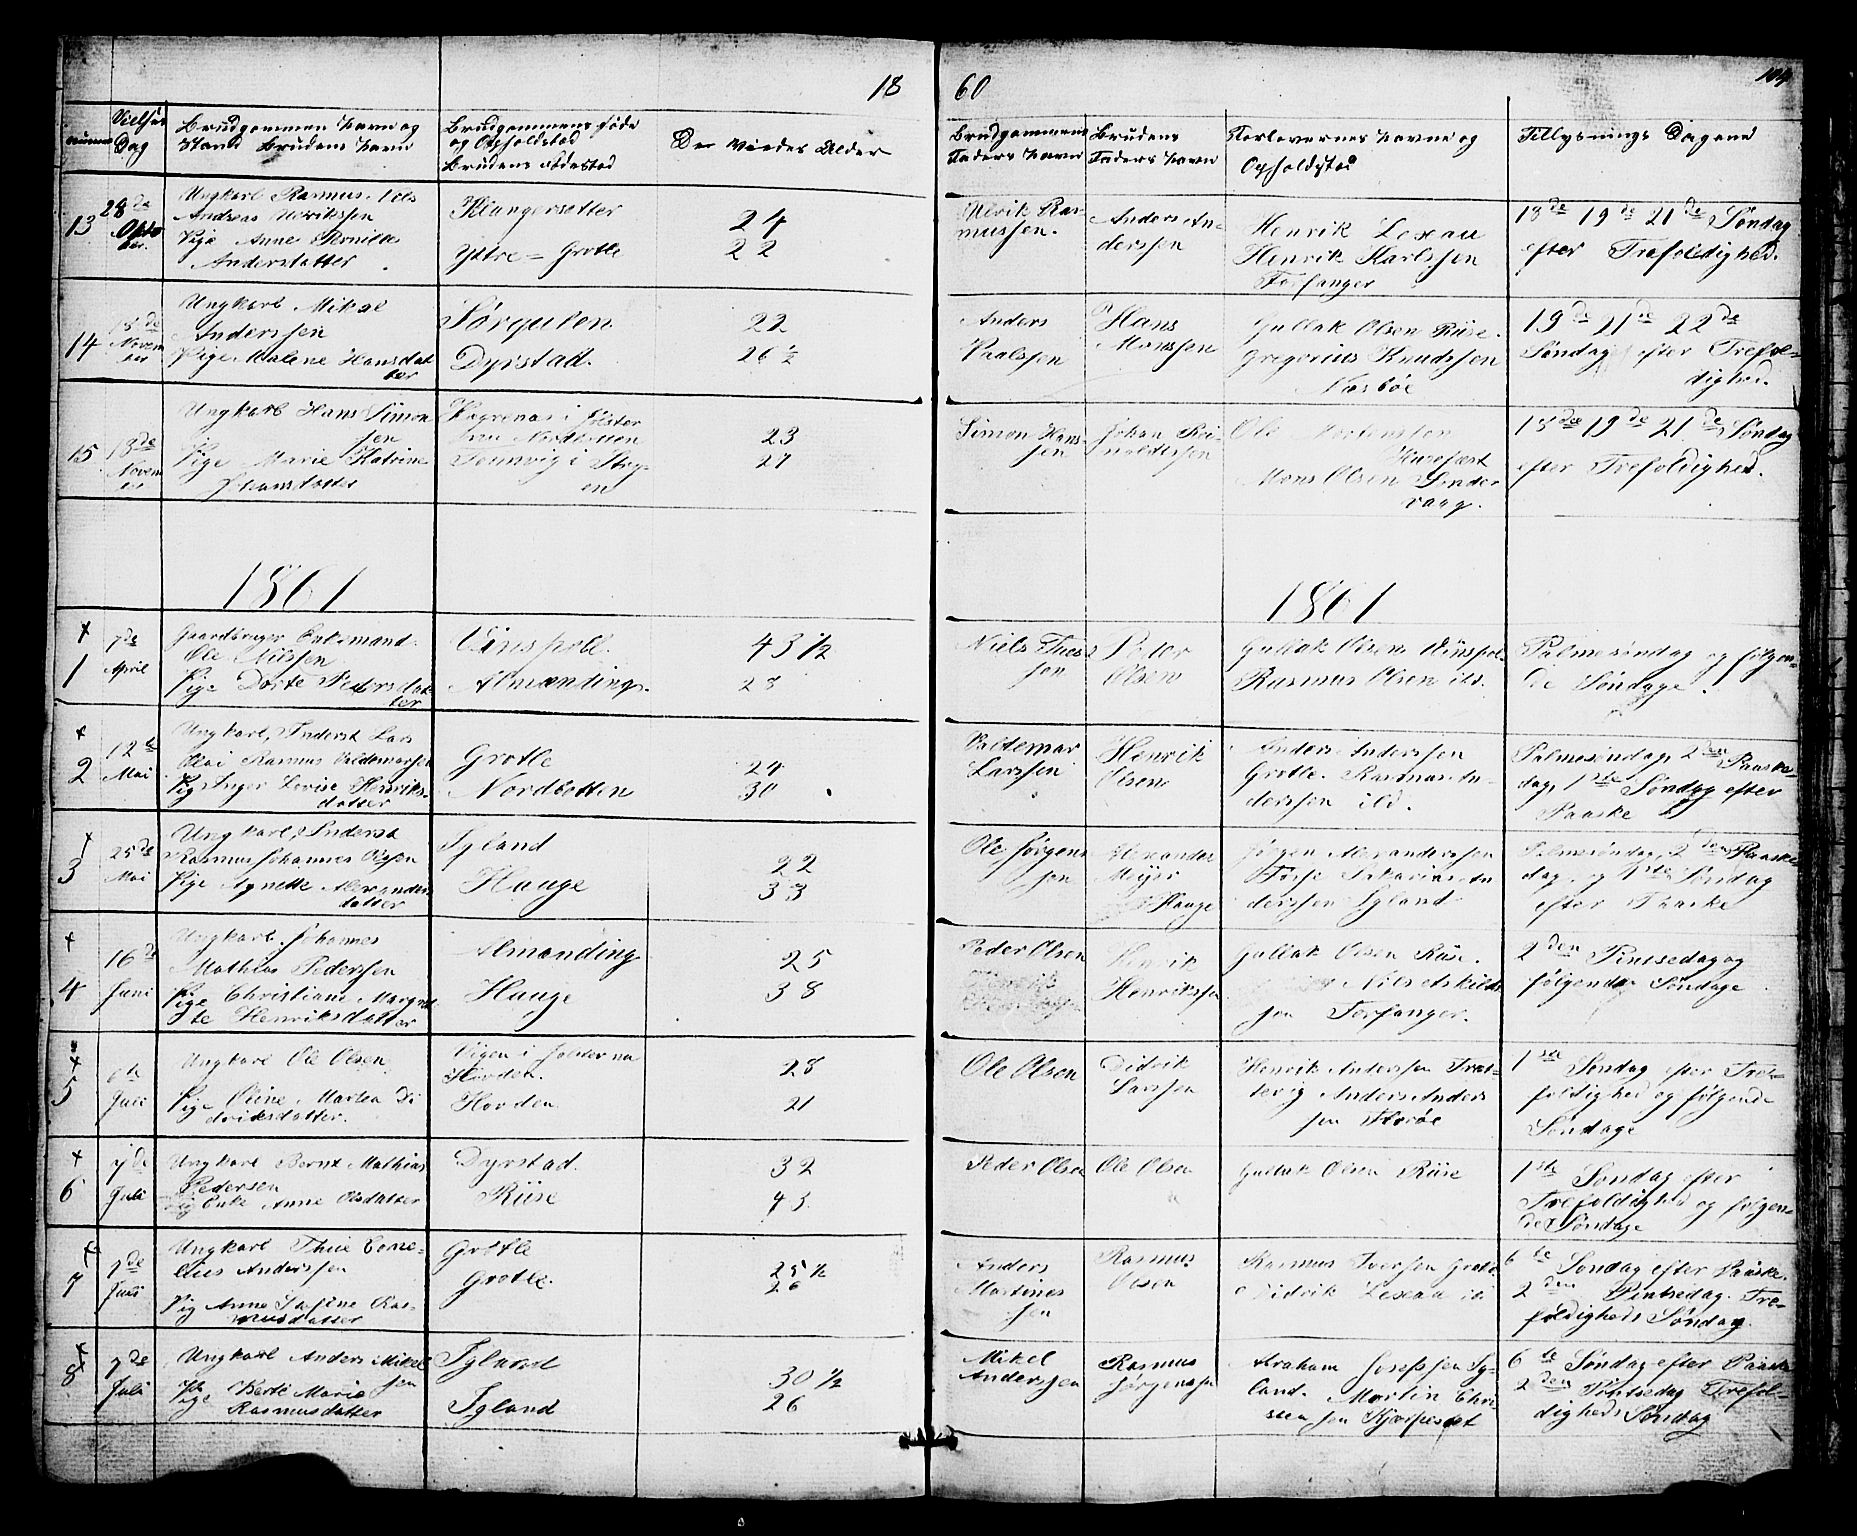 18
60
104
Vielses Dag
Brudgommens Navn og Stand Brudens Navn
Brudgommens Føde og Opholdsted Brudens Fødested
De Viedes Alder
Brudgommens Faders Navn
Brudens Faders Navn
Forlovernes Navne og Opholdsted
Tillysnings Dagene
13
28de
Octo
ber.
Ungkarl Rasmus
Andreas Ulrikssen
Pige Anne Pernille
Anderstatter
Klungersetter
Ytre = Grotle
24
22
Ulrik Ras-
mussen.
Anders An-
derssen
Henrik Lexau
Henrik Karlssen
Torfanger
18de 19de 21de Søndag
efter Trefoldighed.
14
Novem
ber
Ungkarl Mikal
Anderssen
Pige Malene Hansdat
ter
Sørgulen
Dyrstad.
22
26 1/2
Anders
Paalssen
Hans
Monssen
Gullak Olsen Riise.
Gregorius Knudssen
Næsbøe
19de 21de 22de
Søndag efter Trefol-
dighed.
15
18de
Novem
ber
Ungkarl Hans Simon
sen
Pige Marie Katrine
23
27
Simon Hans-
sen
Johan Rei-
noldssen
Ole
Mons Olsen Sinder
vaag.
18de 19de 21de Søndag
efter Trefoldighed.
1861
1861
1
7de
April
Gaardbruger Enkemand
Ole Nilssen
Pige Dorte Pedersdat
ter
Vinspoll
Almending.
43 1/2
28
Niels Thes
sen
Peder
Olsen
Gullak Olsen Vinspol
Rasmus Olsen ild.
Palmesøndag og følgen-
de Søndage.
2
12te
Mai
Ungkarl, Inderst Lars
Olai Rasmus Valdemarsen
Pig Inger Lovise Henriks-
datter
Grotle
Nordbotten
24
30
Valdemar
Larssen
Henrik
Olsen
Anders Anderssen
Grotle. Rasmus An-
derssen ild.
Palmesøndag, 2den Paaske-
dag, 1ste Søndag efter
Paaske
3
25de
Mai
Ungkarl, Inderst
Rasmus Johannes Olssen
Pige Agnette Alexanders
datter
Igland
Hauge
22
33
Ole Jørgens
sen
Alexander
Meyer
Hauge
Jørgen Alexanderssen
Torje Sakarias An
derssen Igland
Palmesøndag, 2den Paaske
dag, og 1ste Søndag
efter Paaske
4
16de
Juni
Ungkarl Johannes
Mathias Pederssen
Pige Christiane Margre
te Henriksdatter
Almending
Hauge
25
38
Peder Olsen
Henrik
Henrikssen
Gullak Olsen Riise.
sen Torfanger.
2den Pintsedag og
følgende Søndage
5
6te
Juli
Ungkarl Ole Olsen
Pige Oline Martea Di
driksdatter.
Hovden.
Hovden
28
21
Ole Olsen
Didrik
Larssen
Henrik Anderssen Træt-
tevig Anders Anders
sen Florøe
1ste Søndag efter Tre-
foldighed og følgende
Søndage
6
7de
Juli
Ungkarl Bernt Mathias
Pedersen
Enke Anne Olsdatter
Dyrstad.
Riise
32
43
Peder Olsen
Ole Olsen
Gullak Olsen Riise
1ste Søndag efter
Trefoldighed og følgen-
de Søndage
7
7de
Juli
Ungkarl Thue Corne-
lius Anderssen
Pig Anne Serine Ras-
musdatter
Grotle
Grotle.
25 1/2
26
Anders
Martines
sen
Rasmus
Olsen
Rasmus Iversen Grotle
Didrik Lexau ild
6te Søndag efter Paaske.
2den Pintsedag. Tre-
foldigheds Søndag.
8
7de
Juli
Ungkarl Anders Mikel
sen
Pige Berte Marie
Rasmusdatter
Igland
Igland
30 1/2
26
Mikel
Anderssen
Rasmus
Jørgenssen
Abraham Josefssen Ig-
land. Martin Chri-
stenssen Kjærpeset
6te Søndag efter Paaske
2den Pintsedag Trefol-
digheds Søndag